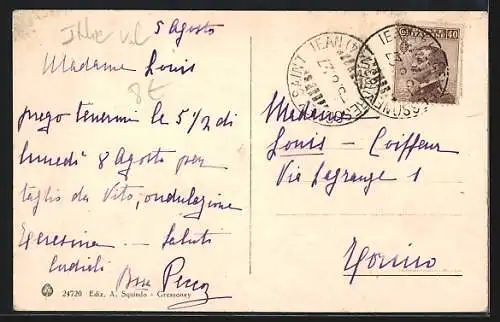 5 Agosto
Madame Louis
prego tenermi le 5 1/2 di
lunedì 8 Agosto per
taglio da Vito, ondulazione
Saluti
Cordiali
8 £
24720 Ediz. A. Squindo - Gressoney
40
SAINT JEAN
Madame
Louis - Coiffeur
Via Lagrange 1
Torino